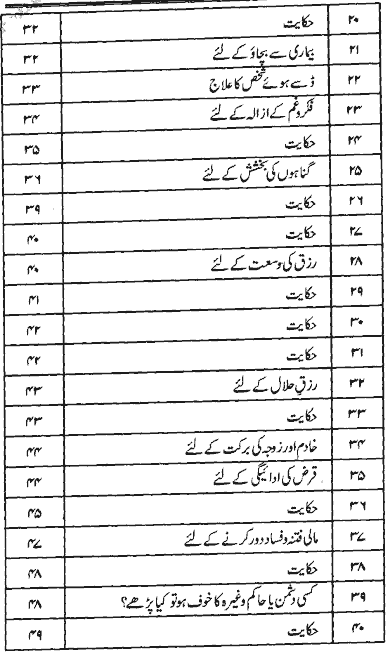 ۲۰ حکایت ۳۲
۲۱ بیماری سے بچاؤ کے لئے ۳۲
۲۲ ڈسے ہوئے شخص کا علاج ۳۳
۲۳ فکر و غم کے ازالہ کے لئے ۳۴
۲۴ حکایت ۳۵
۲۵ گناہوں کی بخشش کے لئے ۳۶
۲۶ حکایت ۳۹
۲۷ حکایت ۴۰
۲۸ رزق کی وسعت کے لئے ۴۰
۲۹ حکایت ۴۱
۳۰ حکایت ۴۲
۳۱ حکایت ۴۲
۳۲ رزقِ حلال کے لئے ۴۳
۳۳ حکایت ۴۳
۳۴ خادم اور زوجہ کی برکت کے لئے ۴۴
۳۵ قرض کی ادائیگی کے لئے ۴۴
۳۶ حکایت ۴۵
۳۷ مالی فتنہ و فساد دور کرنے کے لئے ۴۷
۳۸ حکایت ۴۸
۳۹ کسی دشمن یا حاکم وغیرہ کا خوف ہو تو کیا پڑھے؟ ۴۸
۴۰ حکایت ۴۹